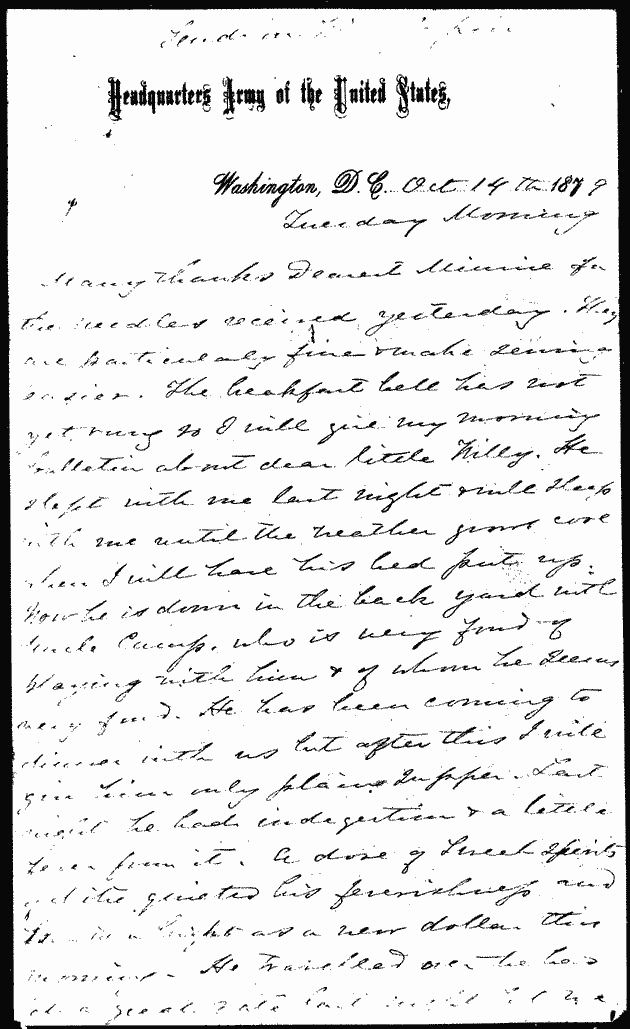 Headquarters Army of the United States,
Washington, D.C. Oct 14th 1879
Tuesday Morning
Many thanks Dearest Minnie for
the needles received yesterday. They
are particularly fine & make sewing
easier. The breakfast bell has not
yet rung so I will give my morning
bulletin about dear little Willy. He
slept with me last night & will sleep
with me until the weather grows cool
when I will have his bed put up.
Now he is down in the back yard with
Uncle Cump, who is very fond of
playing with him & of whom he seems
very fond. He has been coming to
dinner with us but after this I will
give him only plain supper. Last
night he had indigestion & a little
fever from it. A dose of Sweet Spirits
quieted his feverishness and
bright as a new dollar this
morning. He travelled over the bed
at a great rate last night